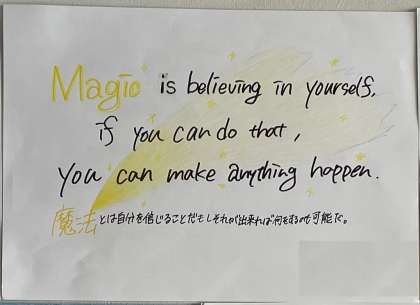 Magic is believing in yourself,
if you can do that,
you can make anything happen.
魔法とは自分を信じることだもしそれが出来れば何をするのも可能だ。